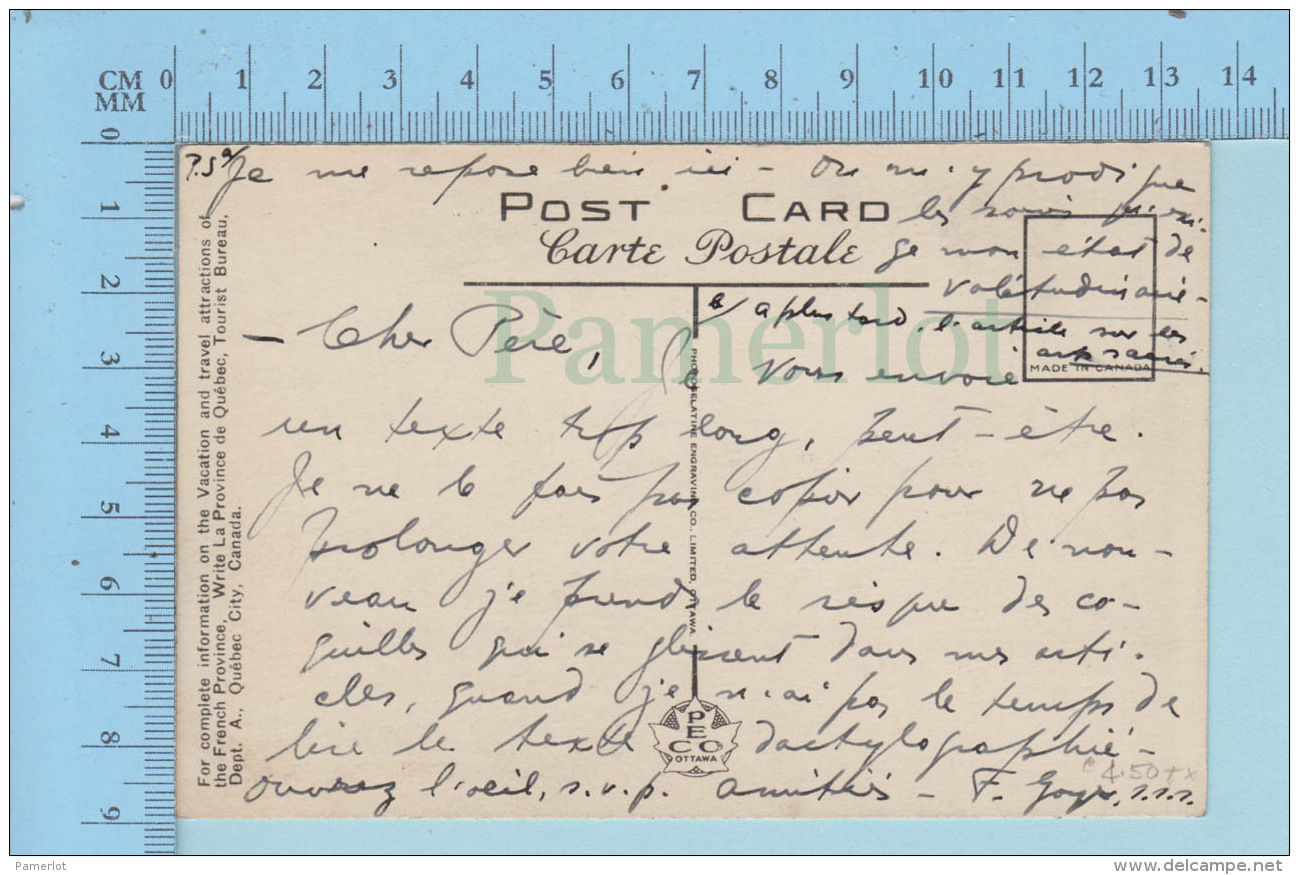 CM 0 1 2 3 4 5 6 7 8 9 10 11 12 13 14
MM
0 1 2 3 4 5 6 7 8 9
P.S. a/ Je me repose bien ici – On m'y prodigue
les soins qu'exi-
ge mon état de
valétudinaire –
b/ à plus tard, l'article sur les
arts sacrés.
POST CARD
Carte Postale
MADE IN CANADA
Pamerlot
– Cher Père, Je vous envoie
un texte trop long, peut-être.
Je ne le fais pas copier pour ne pas
prolonger votre attente. De nou-
veau je prends le risque des co-
quilles qui se glissent dans mes arti-
cles, quand je n'ai pas le temps de
lire le texte dactylographié –
Ouvrez l'oeil, s.v.p. Amitiés – F. Goyer, s.s.s.
For complete information on the Vacation and travel attractions of
the French Province, Write La Province de Québec, Tourist Bureau,
Dept. A., Québec City, Canada.
PHOTOGELATINE ENGRAVING CO., LIMITED, OTTAWA
PECO
OTTAWA
4.50+x
Pamerlot
www.delcampe.net